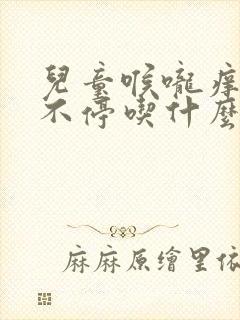 兒童喉嚨痒
不停喫什麼
麻麻原繪里依